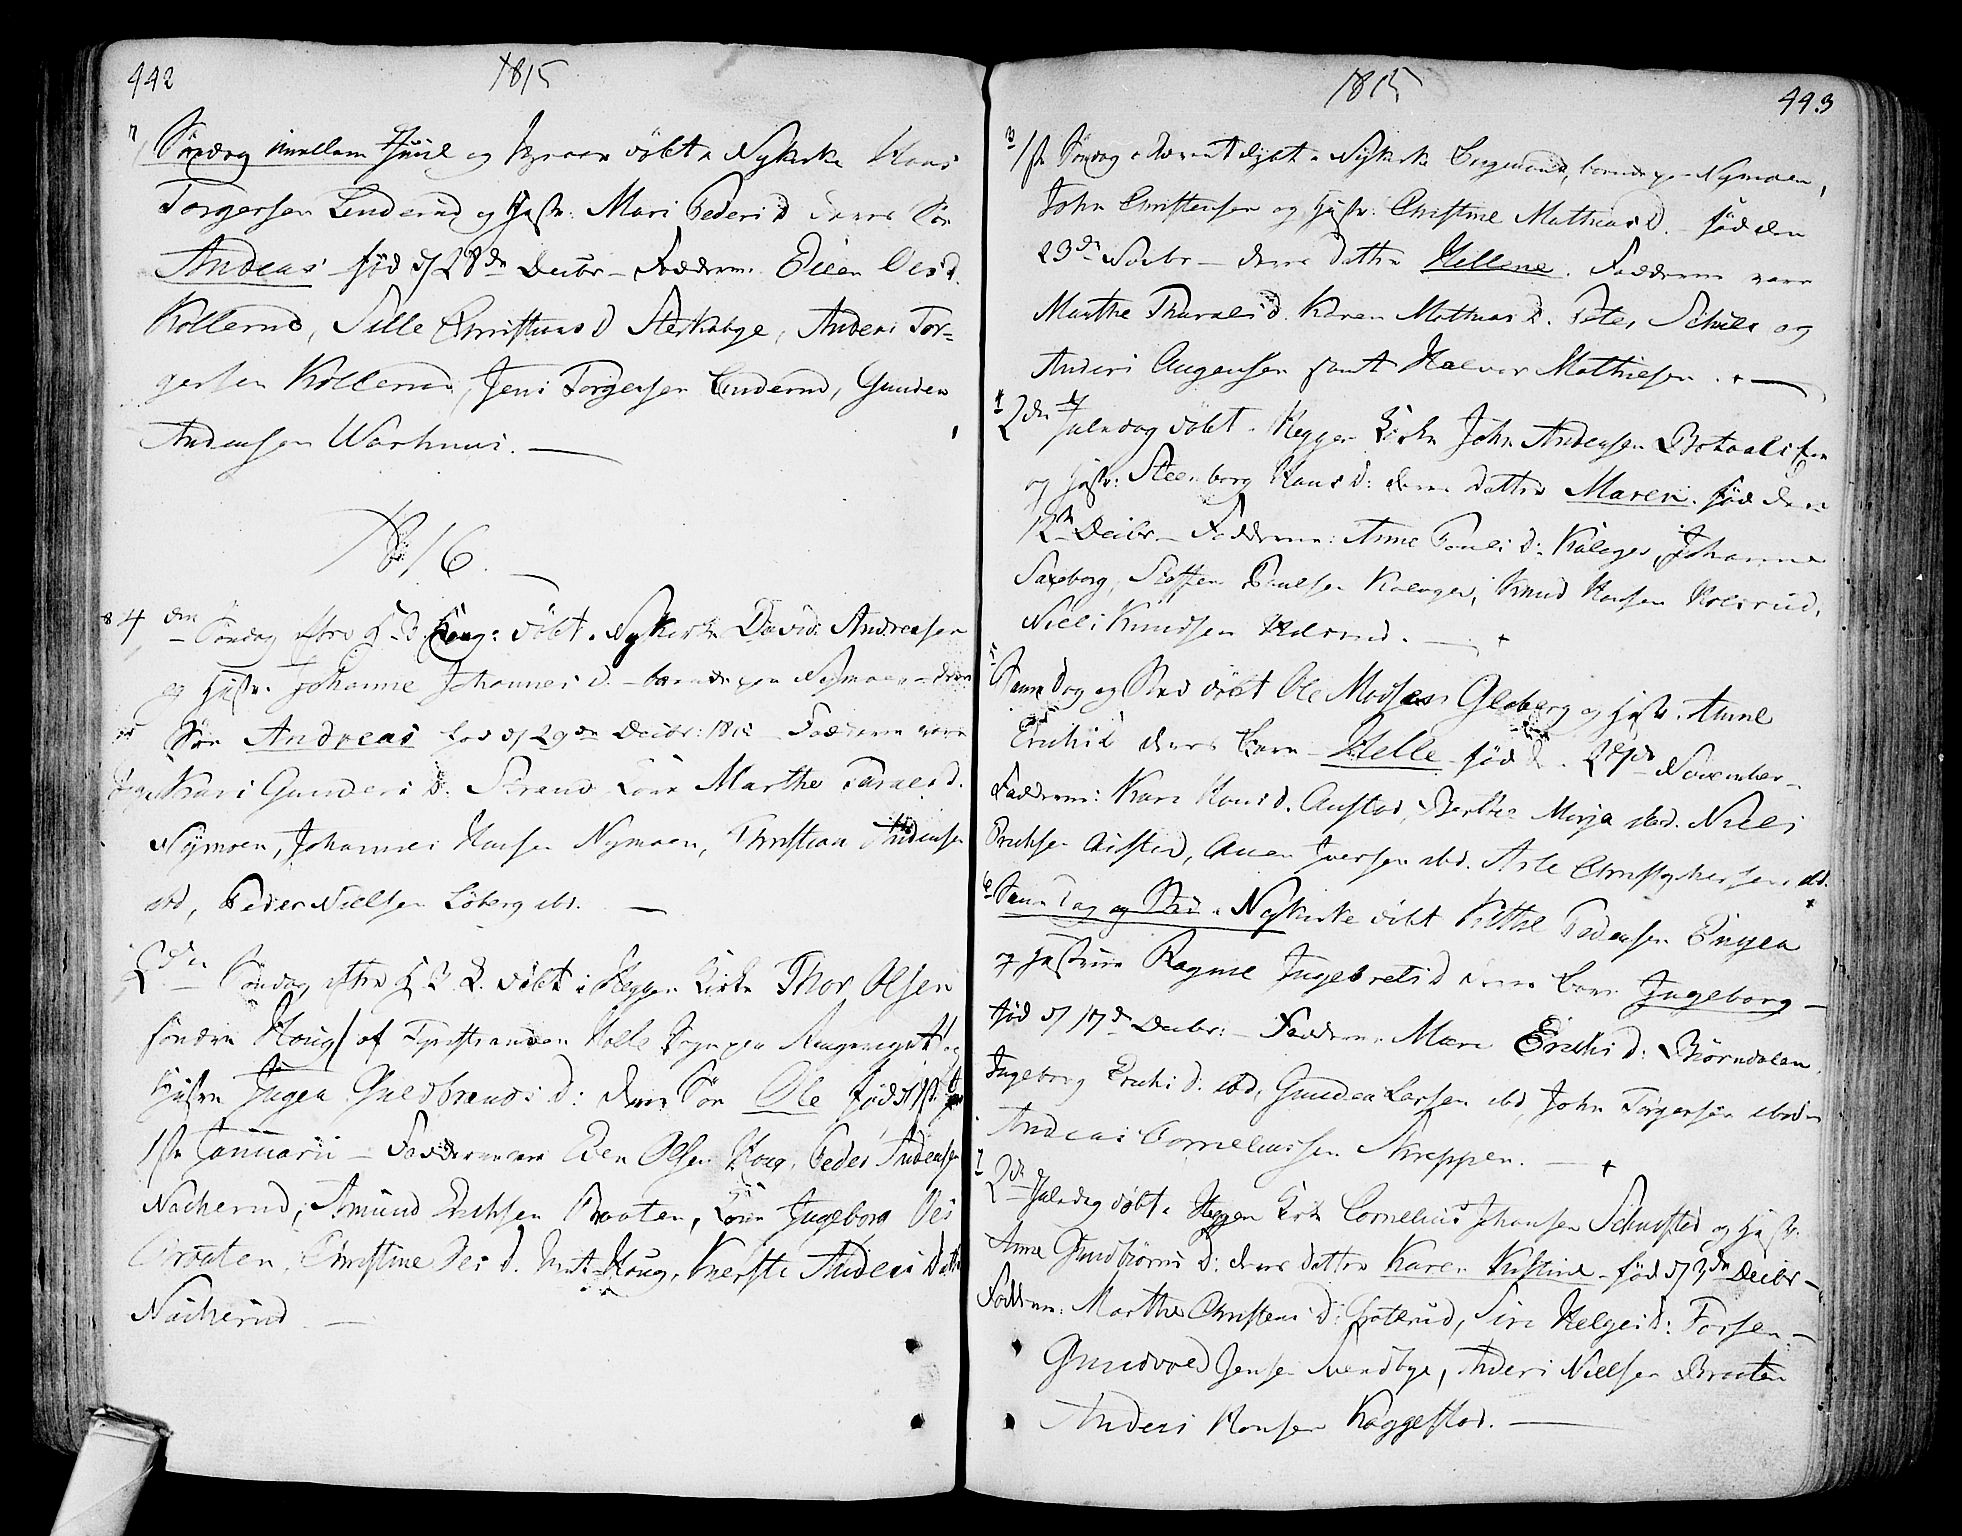 442
1815
7, Søndag imellem Juul og Nyaar døbt i Nykirke Hans
Torgersen Linderud og Hustr: Mari Peders D deres Søn
Andreas født d/ 28de Decbr – Fadderne: Eli Ols D.
Kollerud, Sille Christians D Sterkebye, Anders Tor=
gersen Kollerud, Jens Torgersen Linderud, Gunder
Andersen Warhuus. —
1816. —
8 4 den Søndag efter H 3 Kong: døbt i Nykirke David Andreasen
og Hustr. Johanne Johannes D. – boende paa Nymoen – deres
Søn Andreas fød d/ 29de Decbr: 1815 – Fadderne vare
Kari Gunders D. Strand Kone Marthe Taraldsd.
Nymoen, Johannes Hansen Nymoen, Christian Andersen
ibd, Peder Nielsen Løberg ibd. —
2den Søndag efter H 3 K. døbt i Heggen Kirke Thor Olsen
søndre Houg/ af Tyristranden Holle Sogn paa Ringeriget/ og
Hustru Ingen Guldbrands D: deres Søn Ole fød d/ 1ste
1ste Januarii – Fadderne vare Eden Olsen Houg, Peder Andersen
Nacherud, Amund Erichsen Braaten, Kone Ingeborg Ols
Braaten, Christine Ols D. Houg, Kierste Anders Datter
Nacherud. —
1815
443
3 1ste Søndag i Advent døbt i Nykirke boende paa Nymoen,
John Christensen og Hustr: Christine Mathias D. – fød den
23de Novbr – deres Datter Hellene. Fadderne vare
Marthe Tharals D. Karen Mathias D. Peter Schule og
Anders Augensen samt Halvor Mathiesen. —
4 2den Juledag døbt i Heggen Kirke John Andersen
og Hustr: Steenborg Hans D: deres Datter Maren fød den
12te Decbr – Fadderne: Anne Pouls D: Kalager, Johanne
Saxeborg, Steffen Poulsen Kalager, Knud Hansen Holerud,
Niels Knudsen Holerud. —
5 Samme Dag og Sted døbt Ole Madsen Globerg og Hustr. Anne
Erichs D deres Barn – Helle – fød d. 27de November –
Fadderne: Kari Hans D. Austad, Berthe Maria ibd. Niels
Erichsen Austad, Amen Iversen ibd. Asle Christophersen ibd.
6 Samme Dag og Sted i Nykirke døbt Kittel Pedersen Engen
og Hustrue Ragne Ingebrets D deres Barn Ingeborg –
fød d/ 17de Decbr: – Fadderne: Mari Erichs D: Biørndalen
Ingeborg Erichs D. ibd, Gunder Larsen ibd, John Torgersen ibidem
Andreas Corneliussen Skreppen. —
7 2de Juledag døbt i Heggen Kirke Cornelius Johansen og Hustr.
Anne Gundbiørns D: deres Datter Karen Kirstine – fød d/ 3de Decbr –
Fadderne: Marthe Christens D: Grøterud, Siri Helges D: Forsen –
Gundvold Jensen Svendbye, Anders Nielsen Braaten
Anders Hansen Kaggestad. —